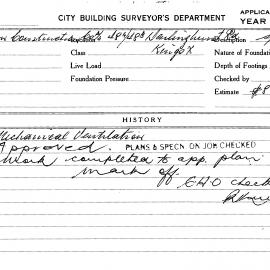 CITY BUILDING SURVEYOR'S DEPARTMENT
APPLICA
YEAR
Darlinghurst Rd
Class
Kings X
Nature of Foundation
Live Load
Depth of Footings
Foundation Pressure
Checked by
Estimate $8
HISTORY
Mechanical Ventilation
Approved. PLANS & SPECN ON JOB CHECKED
Work completed to app. plan
mark off
E.H.O check